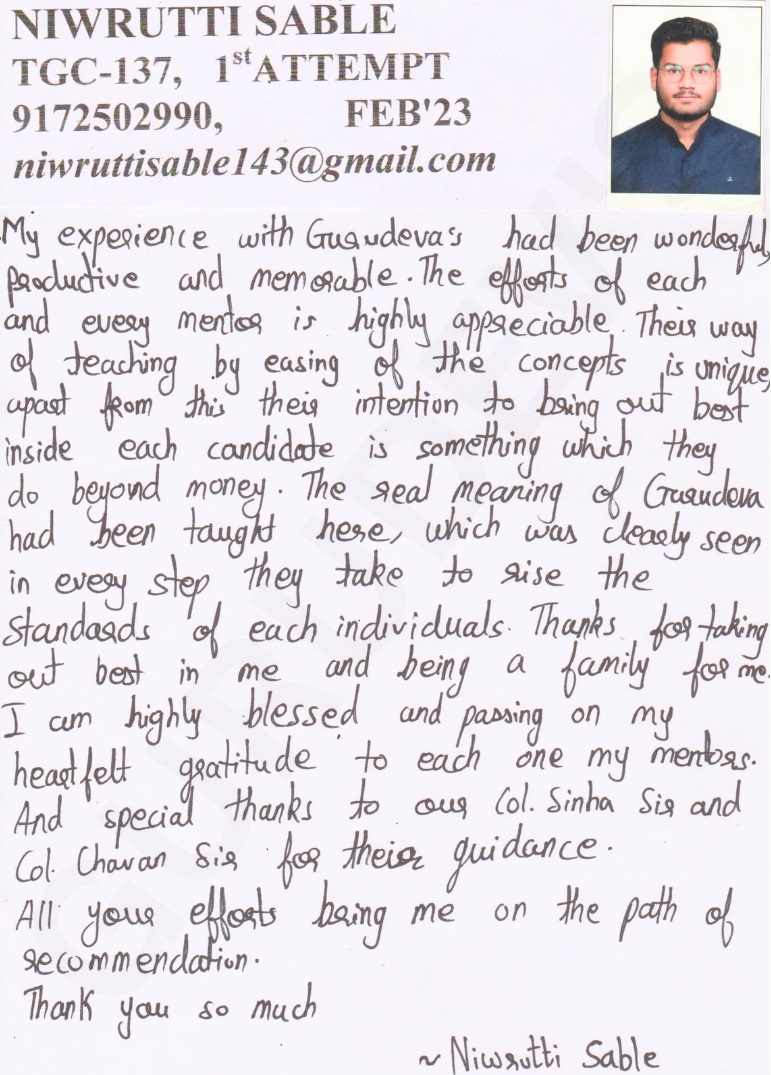 NIWRUTTI SABLE
TGC-137, 1st ATTEMPT
9172502990, FEB'23
niwruttisable143@gmail.com
My experience with Gurudeva's had been wonderful,
productive and memorable. The efforts of each
and every mentor is highly appreciable. Their way
of teaching by easing of the concepts is unique,
apart from this their intention to bring out best
inside each candidate is something which they
do beyond money. The real meaning of Gurudeva
had been taught here, which was clearly seen
in every step they take to rise the
standards of each individuals. Thanks for taking
out best in me and being a family for me.
I am highly blessed and passing on my
heartfelt gratitude to each one my mentors.
And special thanks to our Col. Sinha Sir and
Col. Chavan Sir for their guidance.
All your efforts bring me on the path of
recommendation.
Thank you so much
~ Niwrutti Sable